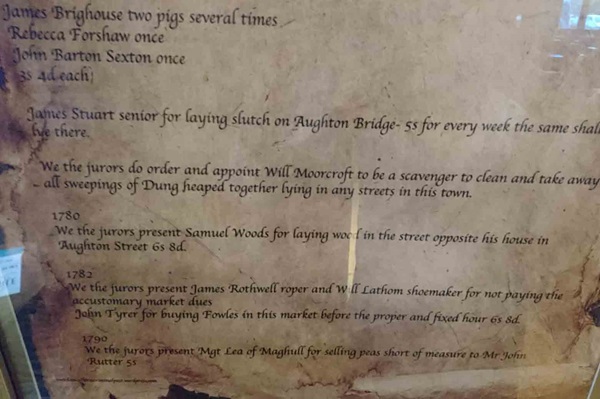 James Brighouse two pigs several times
Rebecca Forshaw once
John Barton Sexton once
3s 4d each)
James Stuart senior for laying slutch on Aughton Bridge- 5s for every week the same shall
lye there.
We the jurors do order and appoint Will Moorcroft to be a scavenger to clean and take away
all sweepings of Dung heaped together lying in any streets in this town.
1780
We the jurors present Samuel Woods for laying wood in the street opposite his house in
Aughton Street 6s 8d.
1782
We the jurors present James Rothwell roper and Will Lathom shoemaker for not paying the
accustomary market dues
John Tyrer for buying Fowles in this market before the proper and fixed hour 6s 8d.
1790
We the jurors present Mgt Lea of Maghull for selling peas short of measure to Mr John
Rutter 5s